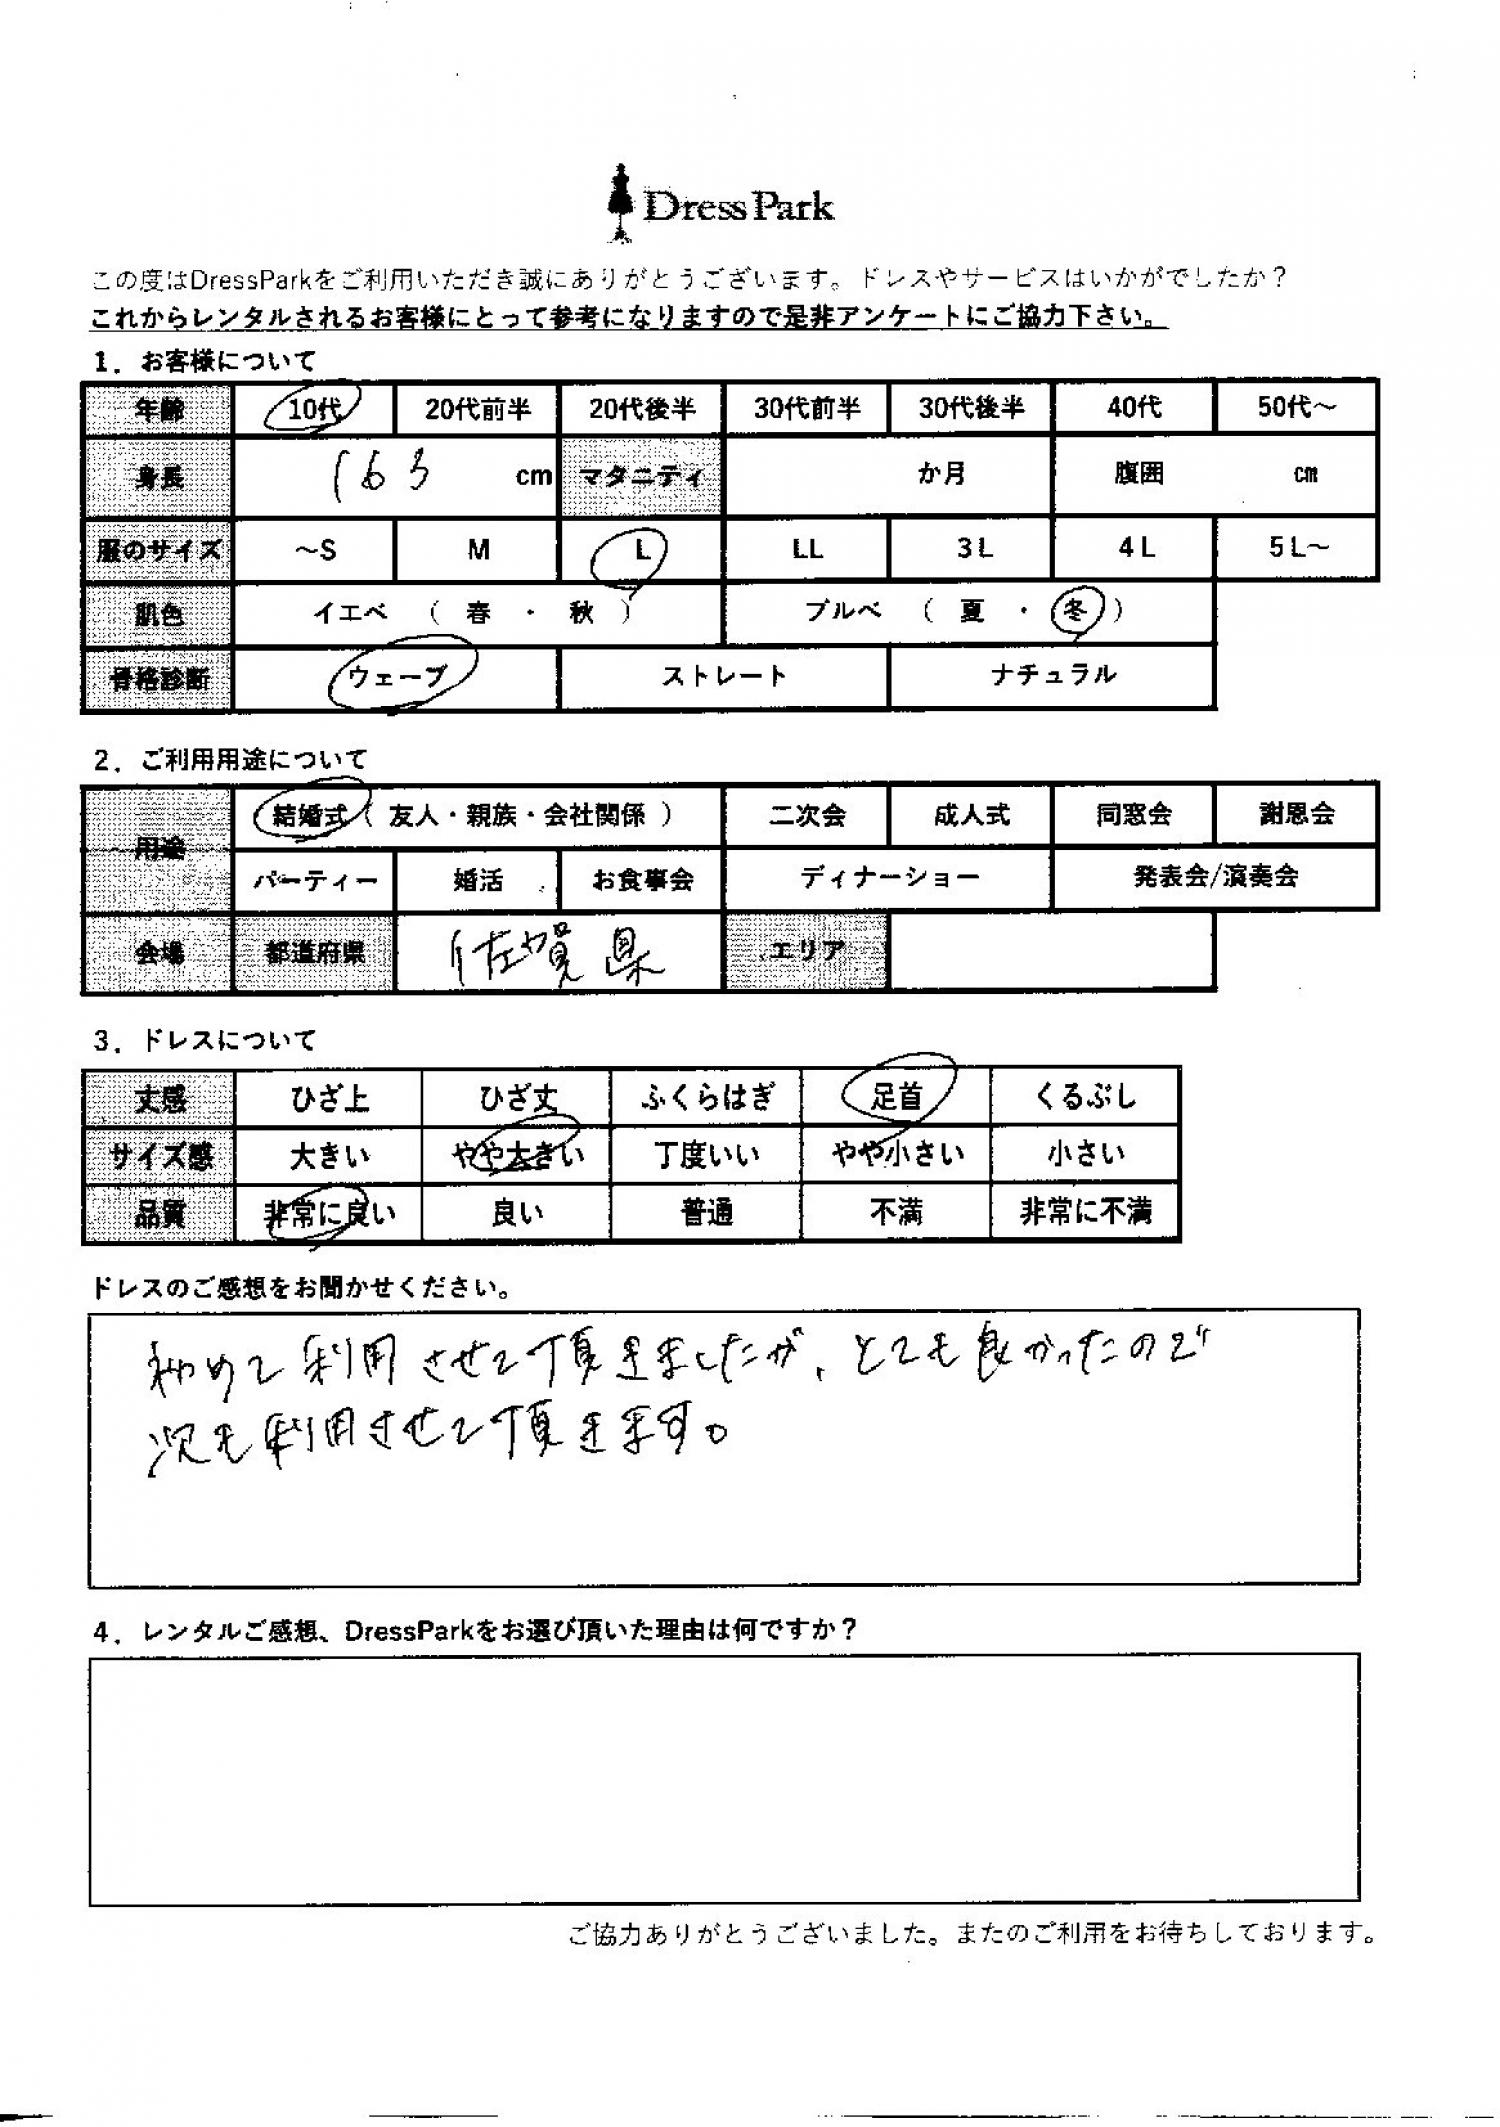 DressPark
この度はDressParkをご利用いただき誠にありがとうございます。ドレスやサービスはいかがでしたか？
これからレンタルされるお客様にとって参考になりますので是非アンケートにご協力下さい。
1．お客様について
年齢 10代 20代前半 20代後半 30代前半 30代後半 40代 50代～
身長 163 cm マタニティ か月 腹囲 cm
服のサイズ ～S M L LL 3L 4L 5L～
肌色 イエベ （ 春 ・ 秋 ） ブルベ （ 夏 ・ 冬 ）
骨格診断 ウェーブ ストレート ナチュラル
2．ご利用用途について
用途 結婚式（ 友人・親族・会社関係 ） 二次会 成人式 同窓会 謝恩会
パーティー 婚活 お食事会 ディナーショー 発表会/演奏会
会場 都道府県 佐賀県 エリア
3．ドレスについて
丈感 ひざ上 ひざ丈 ふくらはぎ 足首 くるぶし
サイズ感 大きい やや大きい 丁度いい やや小さい 小さい
品質 非常に良い 良い 普通 不満 非常に不満
ドレスのご感想をお聞かせください。
初めて利用させて頂きましたが、とても良かったので
次も利用させて頂きます。
4．レンタルご感想、DressParkをお選び頂いた理由は何ですか？
ご協力ありがとうございました。またのご利用をお待ちしております。